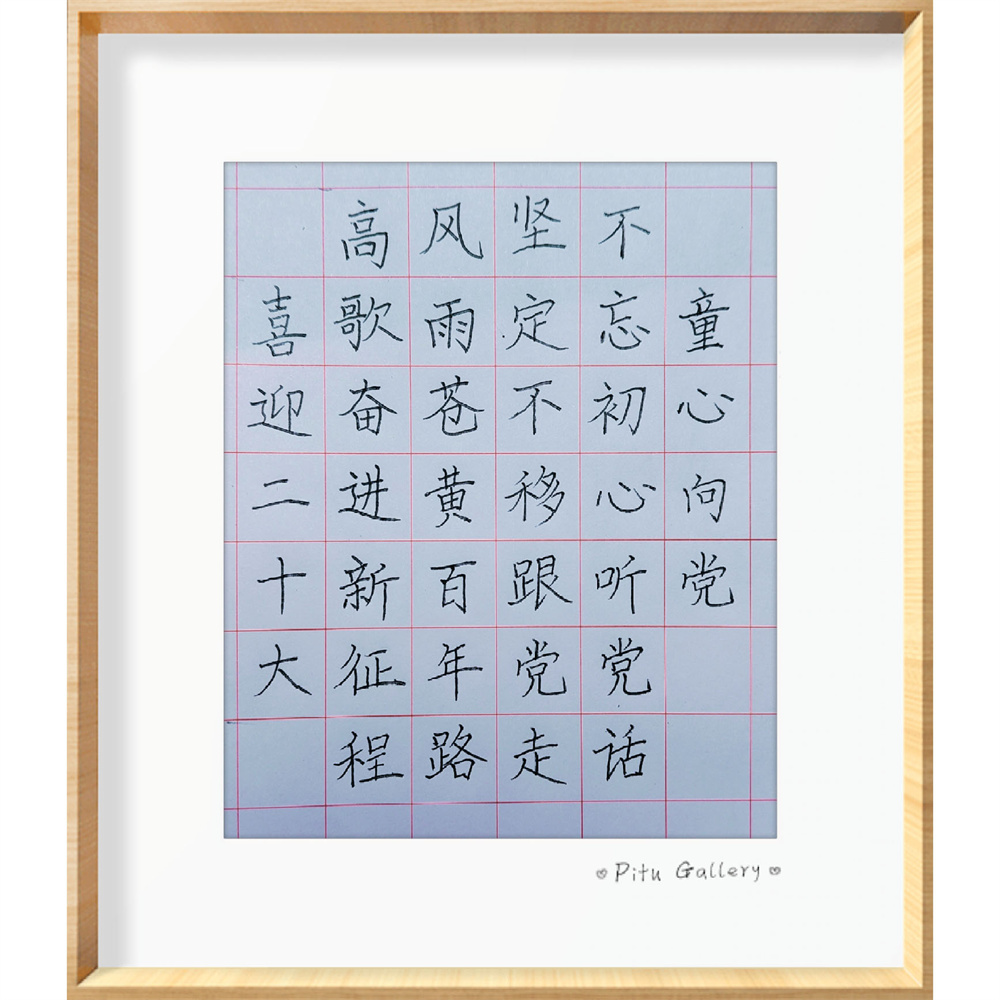 童心向党
不忘初心听党话
坚定不移跟党走
风雨苍黄百年路
高歌奋进新征程
喜迎二十大
Pitu Gallery